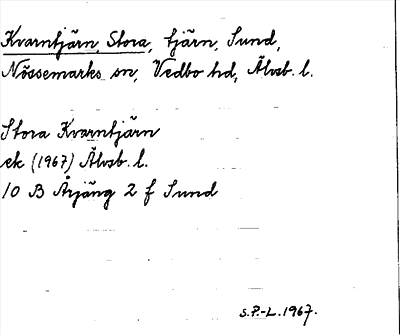 Kvarntjärn, Stora, tjärn, Sund,
Nössemarks sn, Vedbo hd, Älvsb. l.
Stora Kvarntjärn
ek (1967) Älvsb. l.
10 B Årjäng 2 f Sund
S.P.-L. 1967.